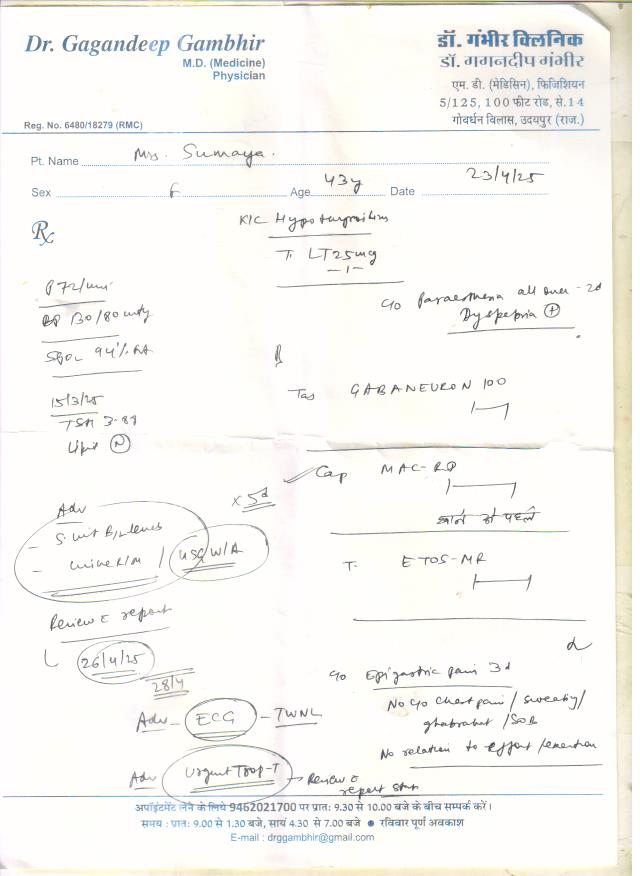 Dr. Gagandeep Gambhir
M.D. (Medicine)
Physician
Reg. No. 6480/18279 (RMC)
डॉ. गंभीर क्लिनिक
डॉ. गगनदीप गंभीर
एम. डी. (मेडिसिन), फिजिशियन
5/125, 100 फीट रोड, से.14
गोवर्धन विलास, उदयपुर (राज.)
Pt. Name Mrs. Sumaya.
Sex F Age 43y Date 23/4/25
Rx
K/C Hypothyroidism
T. LT 25mg
- 1 -
P 72/min
BP 130/80 mmHg
SpO2 94% RA
15/3/25
TSH
Lipid (N)
C/o Paraesthesia all over - 2d
Dyspepsia (+)
Tab GABANEURON 100
Cap MAC-RD
x 5d
खाने से पहले
T. ETOS-MR
Adv
- S. Vit B12 levels
- Urine R/M / USG W/A
Review c report
26/4/25
28/4
Adv - ECG - TWNL
Adv Urgent Trop-T → Review c
report
C/o Epigastric pain 3d
No C/o Chest pain / sweating /
ghabrahat / SOB
No relation to effort / exertion
अपॉइंटमेंट लेने के लिये 9462021700 पर प्रात: 9.30 से 10.00 बजे के बीच सम्पर्क करें।
समय : प्रात: 9.00 से 1.30 बजे, सायं 4.30 से 7.00 बजे ● रविवार पूर्ण अवकाश
E-mail : drggambhir@gmail.com